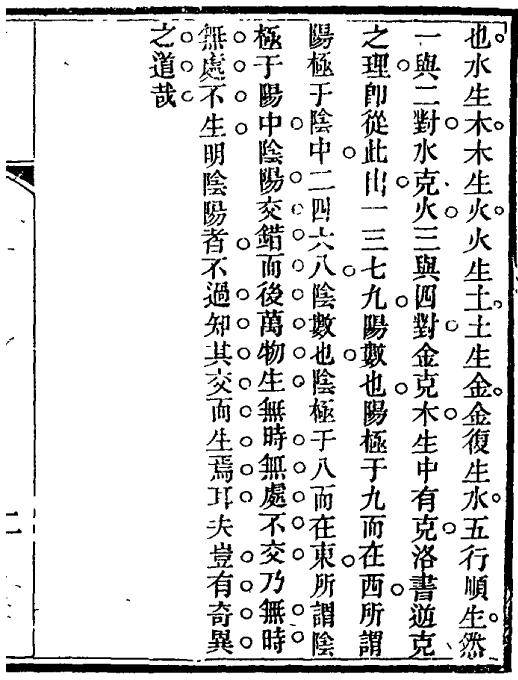 也水生木木生火火生土土生金金復生水五行順生然
一與二對水克火三與四對金克木生中有克洛書逆克
之理卽從此出一三七九陽數也陽極于九而在西所謂
陽極于陰中二四六八陰數也陰極于八而在東所謂陰
極于陽中陰陽交錯而後萬物生無時無處不交乃無時
無處不生明陰陽者不過知其交而生焉耳夫豈有奇異
之道哉
二